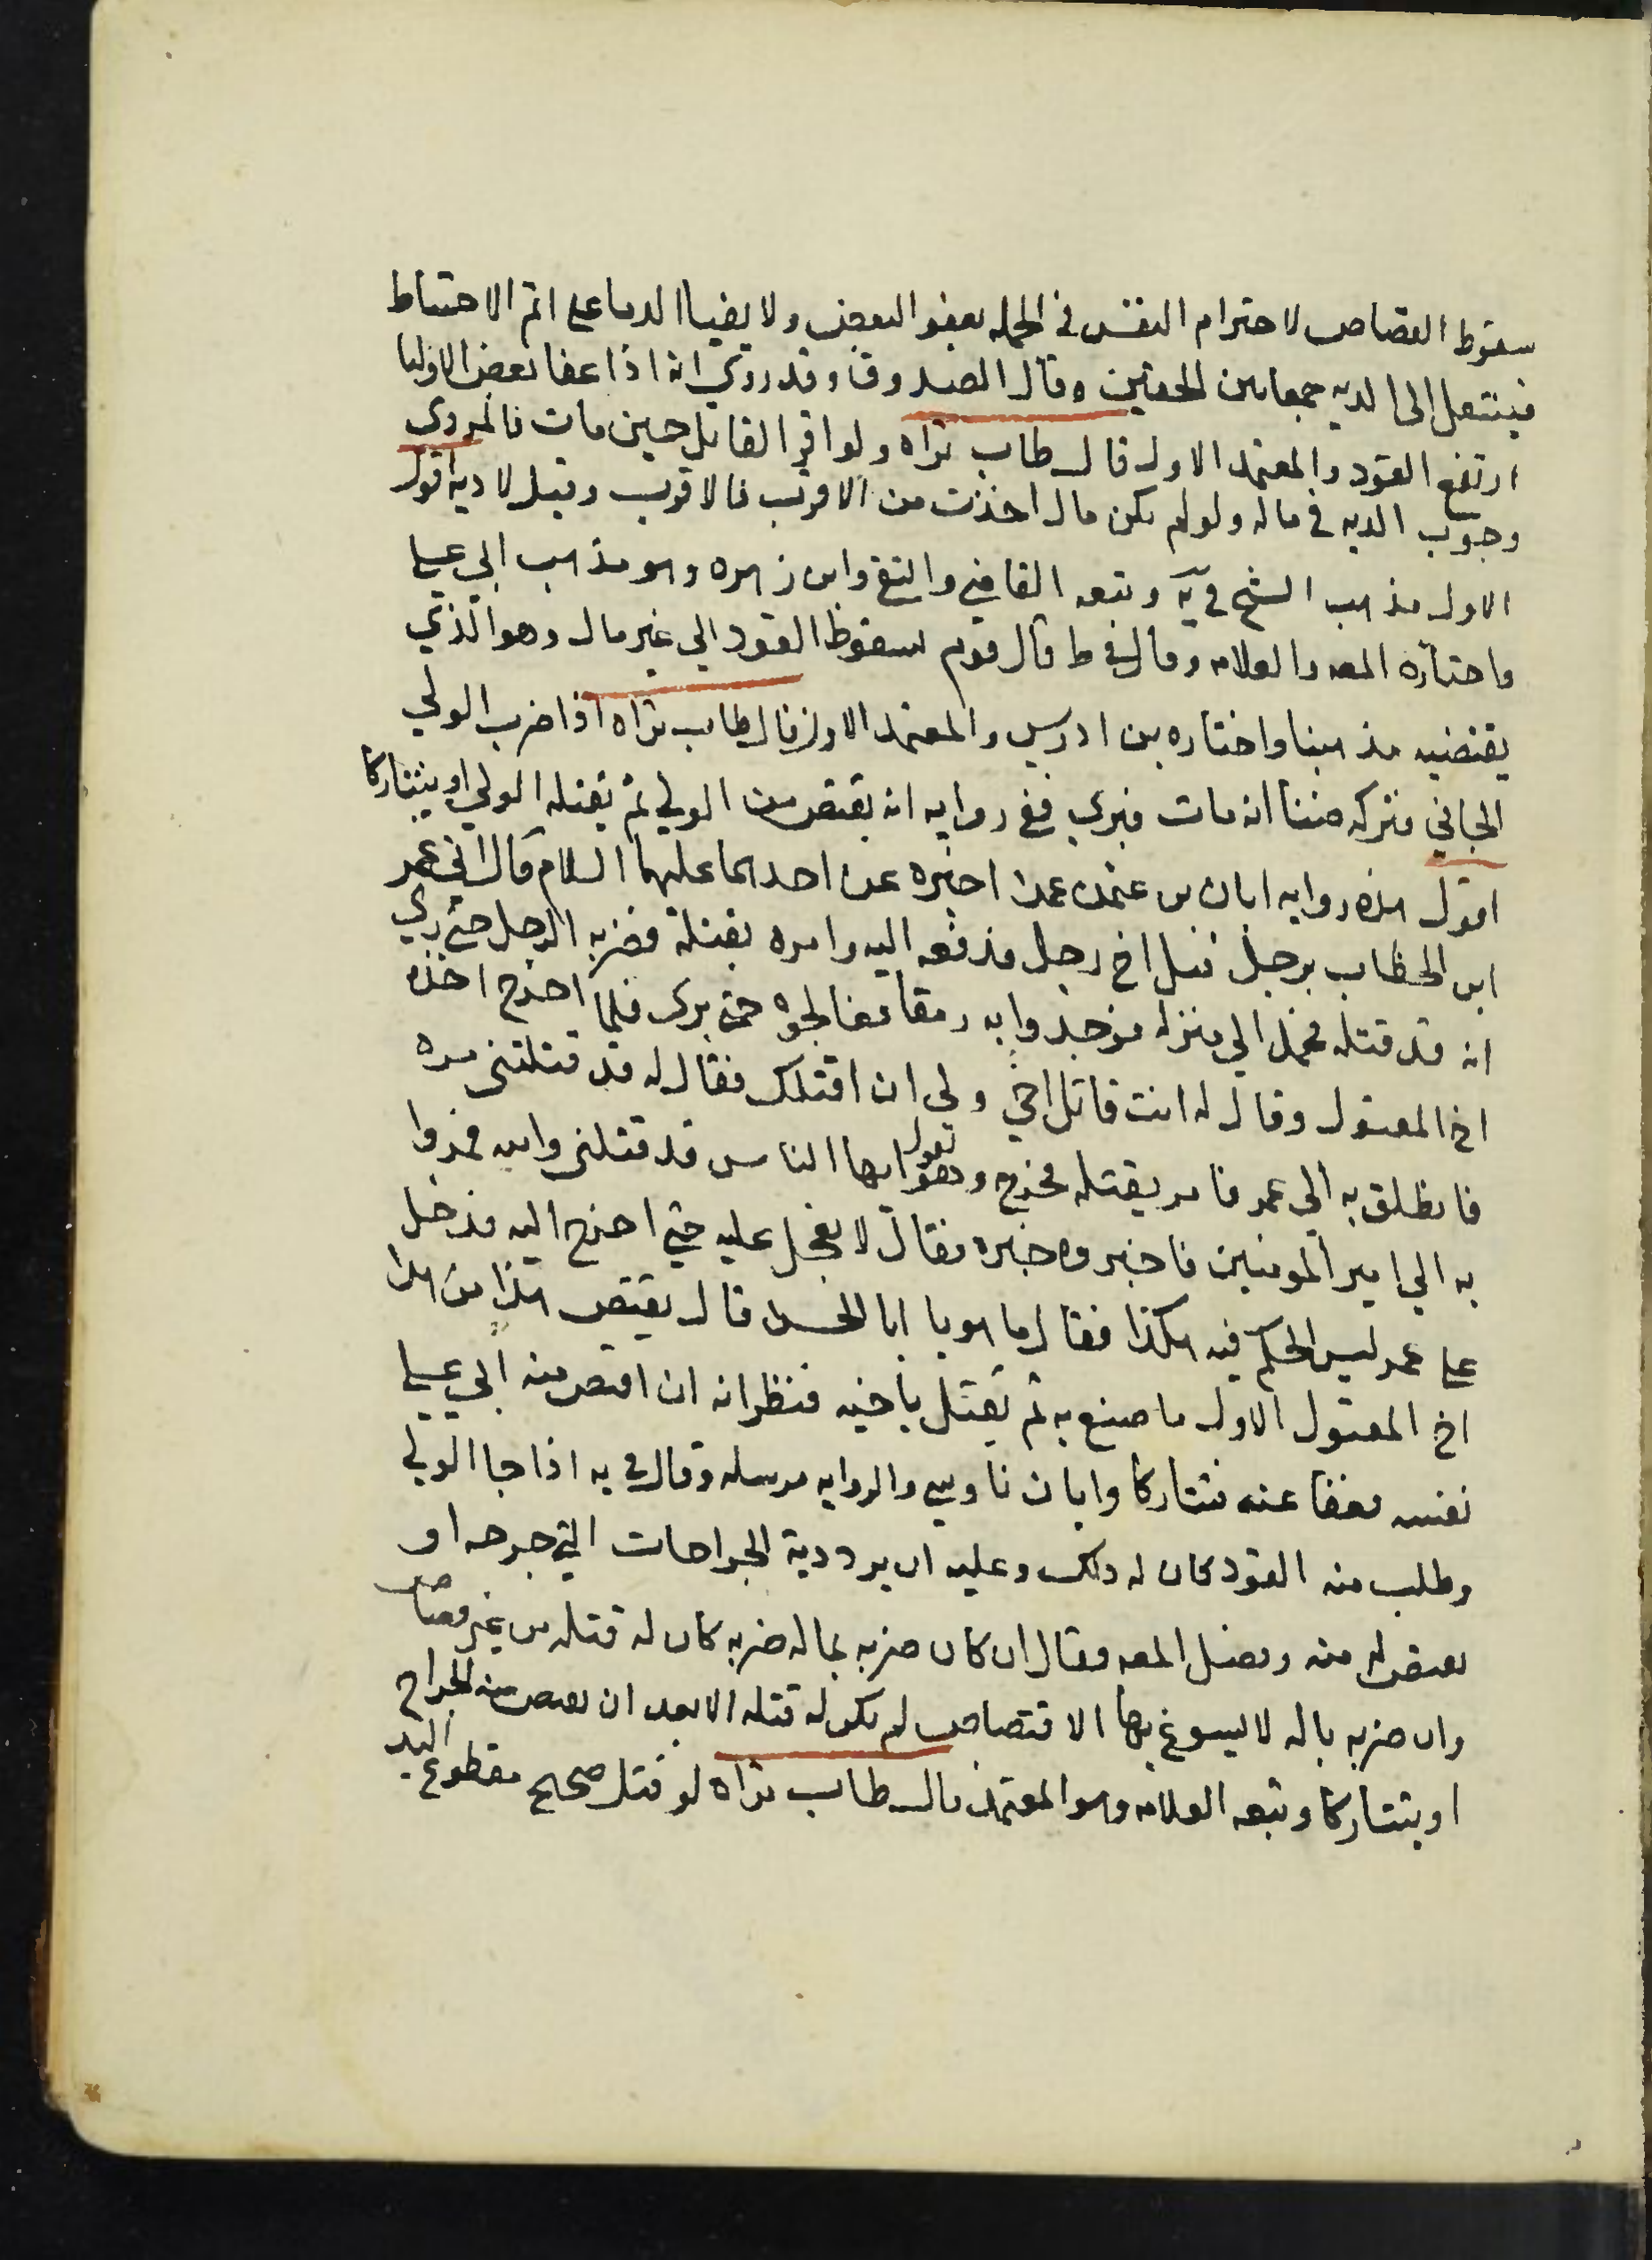 سقوط القصاص لاحترام النفس في الجمله بعفو البعض ولابقيا الدما على اتم الاحتياط
فينتقل الى الديه جمعا بين الحقين وقال الصدوق وقد روي انه اذا عفا بعض الاوليا
ارتفع القود والمعتمد الاول قال طاب ثراه ولو اقر القاتل حين مات فالمروي
وجوب الديه في ماله ولو لم يكن مال اخذت من الاقرب فالاقرب وقيل لا ديه اقول
الاول مذهب الشيخ في يه وتبعه القاضي والتقي وابن زهره وهو مذهب ابي علي
واختاره المصه والعلامه وقال في ط قال قوم بسقوط القود الي غير مال وهو الذي
يقتضيه مذهبنا واختاره بن ادريس والمعتمد الاول قال طاب ثراه اذا ضرب الولي
الجاني وتركه ظننا انه مات فبري ففي روايه انه يقتص من الولي ثم يقتله الولي او يتتاركا
اقول هذه روايه ابان بن عثمن عمن اخبره عن احدهما عليهما السلام قال اتي عمر
ابن الخطاب برجل قتل اخ رجل فدفعه اليه وامره بقتله فضربه الرجل حتى راي
انه قد قتله فحمل الي منزله فوجدوا به رمقا فعالجوه حتى برى فلما اخرج اخذه
اخ المقتول وقال له انت قاتل اخي ولي ان اقتلك فقال له قد قتلتني مره
فانطلق به الي عمر فامر بقتله فخرج وهو يقول ايها الناس قد قتلني والله فمروا
به الي امير المومنين فاخبروه خبره فقال لا تعجل عليه حتى اخرج اليه فدخل
على عمر ليس الحكم فيه هكذا فقال ما هو يا ابا الحسن قال يقتص هذا من هذا
اخ المقتول الاول ما صنع به ثم يقتل باخيه فنظر انه ان اقتص منه ابي علي
نفسه فعفا عنه فتتاركا وابان ناووسي والروايه مرسله وقال في يه اذا جا الولي
وطلب منه القود كان له ذلك وعليه ان يرد دية الجراحات التي جرحه او
يقتص له منه وفصل المصه وقال ان كان ضربه بما له ضربه كان له قتله من غير قصاص
وان ضربه بما له لا يسوغ بها الاقتصاص لم يكن له قتله الا بعد ان يقتص منه الجراح
او يتتاركا وتبعه العلامه وهو المعتمد قال طاب ثراه لو قتل صحيح مقطوع اليد